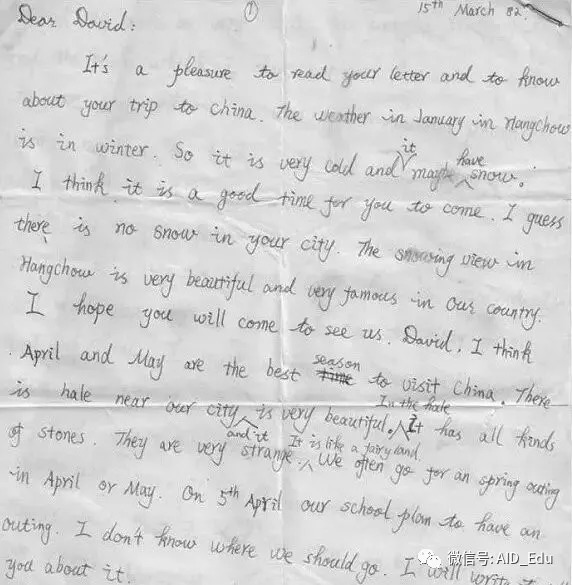 ①
15th March 82.
Dear David:
It's a pleasure to read your letter and to know
about your trip to China. The weather in January in Hangchow
is in winter. So it is very cold and it maybe have snow.
I think it is a good time for you to come. I guess
there is no snow in your city. The snowing view in
Hangchow is very beautiful and very famous in our country.
I hope you will come to see us. David, I think
April and May are the best season to visit China. There
is hale near our city and it is very beautiful. In the hale It has all kinds
of stones. They are very strange. It is like a fairy land We often go for an spring outing
in April or May. On 5th April our school plan to have an
outing. I don't know where we should go. I will write to
you about it.
微信号: AID_Edu